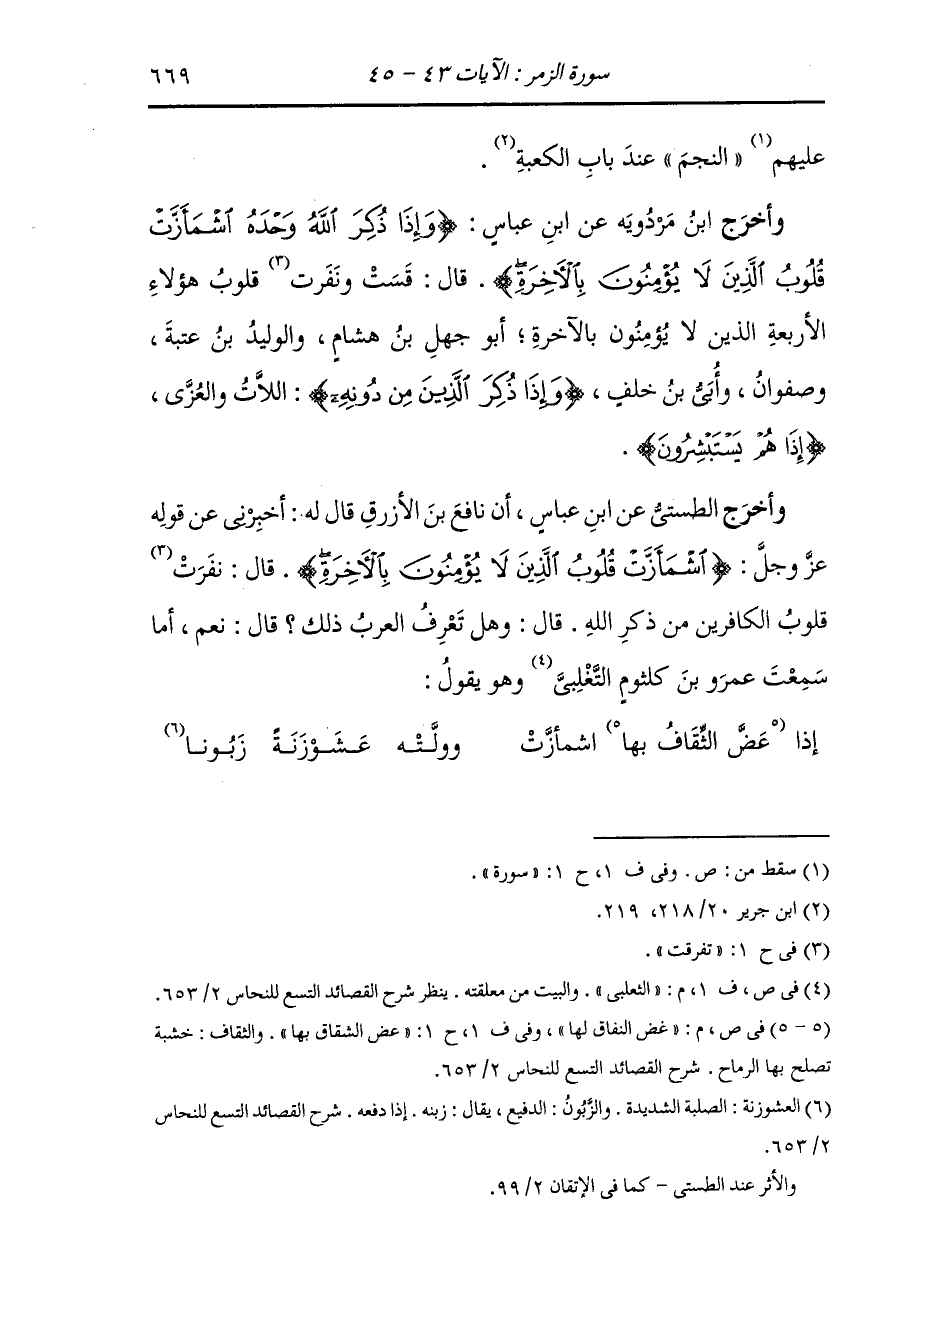 سورة الزمر : الآيات ٤٣ - ٤٥ ٦٦٩
عليهم(١) « النجمَ » عندَ بابِ الكعبةِ(٢) .
وأخرَج ابنُ مَرْدُويَه عن ابنِ عباسٍ : ﴿وَإِذَا ذُكِرَ ٱللَّهُ وَحْدَهُ ٱشْمَأَزَّتْ
قُلُوبُ ٱلَّذِينَ لَا يُؤْمِنُونَ بِٱلْأَخِرَةِۖ﴾ . قال : قَسَتْ ونَفَرت(٣) قلوبُ هؤلاءِ
الأربعةِ الذين لا يُؤمِنُون بالآخرةِ ؛ أبو جهلِ بنُ هشامٍ ، والوليدُ بنُ عتبةَ ،
وصفوانُ ، وأُبَىُّ بنُ خلفٍ ، ﴿وَإِذَا ذُكِرَ ٱلَّذِينَ مِن دُونِهِۦٓ﴾ : اللاَّتُ والعُزَّى ،
﴿إِذَا هُمْ يَسْتَبْشِرُونَ﴾ .
وأخرَج الطستىُّ عن ابنِ عباسٍ ، أن نافعَ بنَ الأزرقِ قال له : أخبِرْنى عن قولِه
عزَّ وجلَّ : ﴿ٱشْمَأَزَّتْ قُلُوبُ ٱلَّذِينَ لَا يُؤْمِنُونَ بِٱلْأَخِرَةِۖ﴾ . قال : نفَرَتْ(٣)
قلوبُ الكافرين من ذكرِ اللهِ . قال : وهل تَعْرِفُ العربُ ذلك ؟ قال : نعم ، أما
سَمِعْتَ عمرَو بنَ كلثومٍ التَّغْلِبىَّ(٤) وهو يقولُ :
إذا (٥عَضَّ الثِّقَافُ بها٥) اشمأزَّتْ وولَّتْه عَشَوْزَنَةً زَبُونا(٦)
(١) سقط من : ص . وفى ف ١، ح ١: «سورة» .
(٢) ابن جرير ٢٠/ ٢١٨، ٢١٩.
(٣) فى ح ١: «تفرقت» .
(٤) فى ص ، ف ١، م : «الثعلبى» . والبيت من معلقته . ينظر شرح القصائد التسع للنحاس ٢/ ٦٥٣.
(٥ - ٥) فى ص ، م : «غض النفاق لها» ، وفى ف ١، ح ١: «عض الشقاق بها» . والثقاف : خشبة
تصلح بها الرماح . شرح القصائد التسع للنحاس ٢/ ٦٥٣.
(٦) العشوزنة : الصلبة الشديدة . والزَّبُونُ : الدفيع ، يقال : زبنه . إذا دفعه . شرح القصائد التسع للنحاس
٢/ ٦٥٣.
والأثر عند الطستى - كما فى الإتقان ٢/ ٩٩.